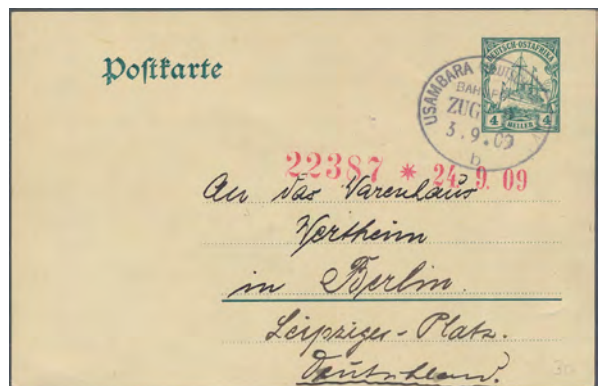 Postkarte
DEUTSCH-OSTAFRIKA
4 HELLER 4
USAMBARA
ZUG
3.9.09
b
22387 * 24. 9. 09
An das Varenhaus
Wertheim
in Berlin.
Leipziger-Platz.
Deutschland.
30